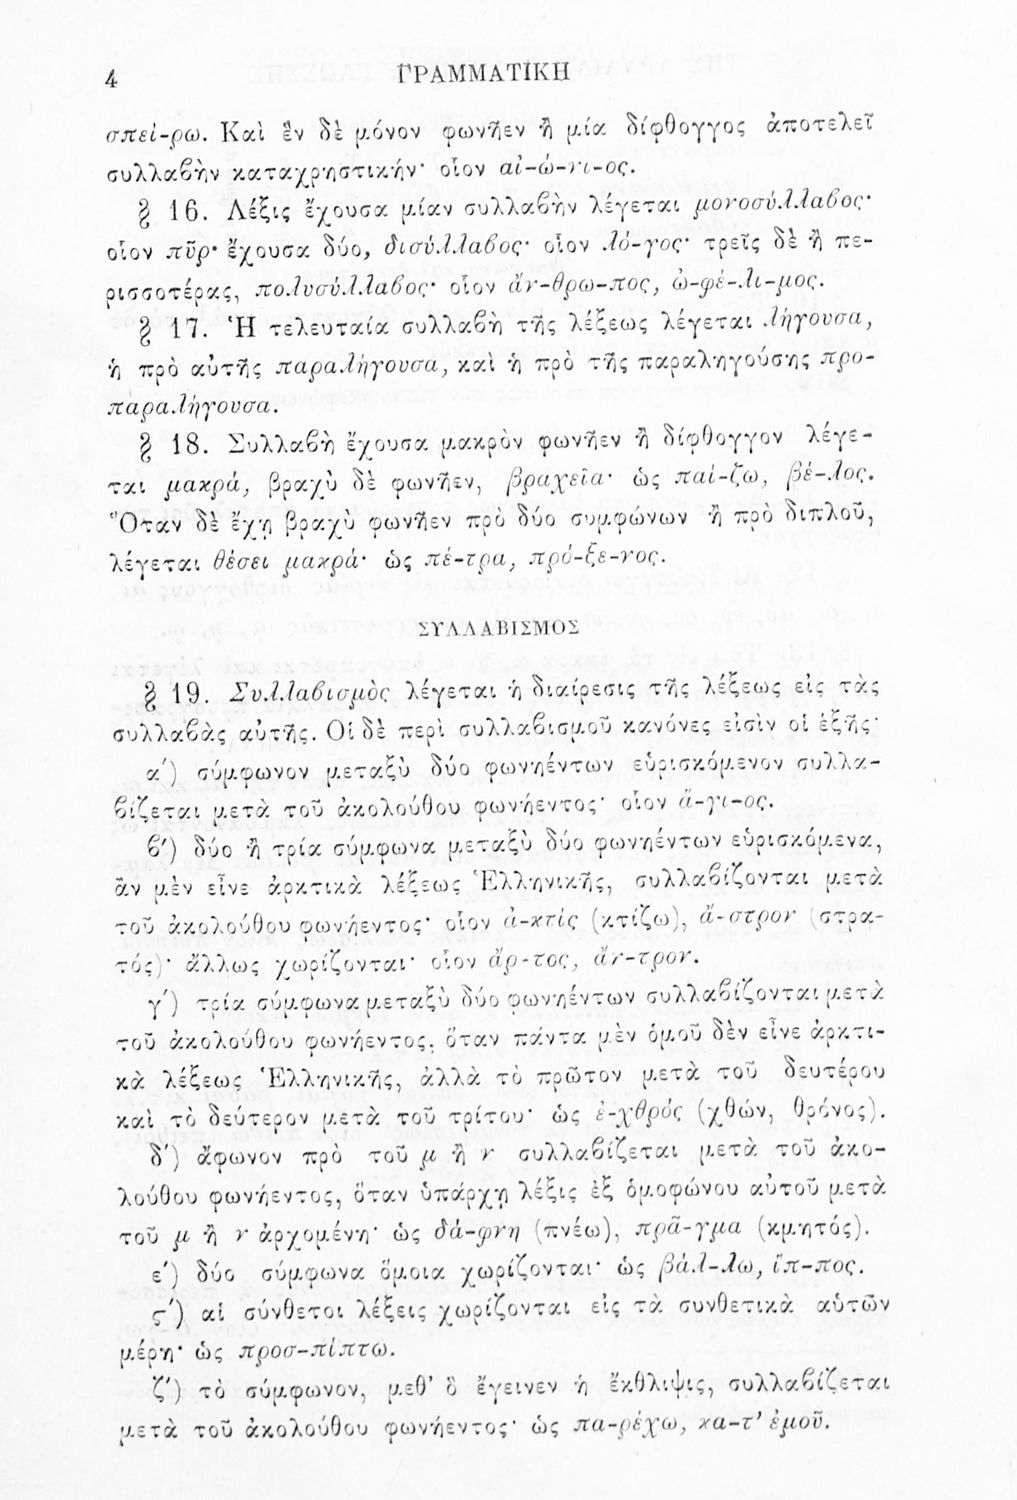 4 ΓΡΑΜΜΑΤΙΚΗ
σπεί-ρω. Καὶ ἓν δὲ μόνον φωνῆεν ἢ μία δίφθογγος ἀποτελεῖ
συλλαβὴν καταχρηστικήν· οἷον αἰ-ώ-νι-ος.
§ 16. Λέξις ἔχουσα μίαν συλλαβὴν λέγεται μονοσύλλαβος·
οἷον πῦρ· ἔχουσα δύο, δισύλλαβος· οἷον λό-γος· τρεῖς δὲ ἢ πε-
ρισσοτέρας, πολυσύλλαβος· οἷον ἄν-θρω-πος, ὠ-φέ-λι-μος.
§ 17. Ἡ τελευταία συλλαβὴ τῆς λέξεως λέγεται λήγουσα,
ἡ πρὸ αὐτῆς παραλήγουσα, καὶ ἡ πρὸ τῆς παραληγούσης προ-
παραλήγουσα.
§ 18. Συλλαβὴ ἔχουσα μακρὸν φωνῆεν ἢ δίφθογγον λέγε-
ται μακρά, βραχὺ δὲ φωνῆεν, βραχεῖα· ὡς παί-ζω, βέ-λος.
Ὅταν δὲ ἔχῃ βραχὺ φωνῆεν πρὸ δύο συμφώνων ἢ πρὸ διπλοῦ,
λέγεται θέσει μακρά· ὡς πέ-τρα, πρό-ξε-νος.
ΣΥΛΛΑΒΙΣΜΟΣ
§ 19. Συλλαβισμὸς λέγεται ἡ διαίρεσις τῆς λέξεως εἰς τὰς
συλλαβὰς αὐτῆς. Οἱ δὲ περὶ συλλαβισμοῦ κανόνες εἰσὶν οἱ ἑξῆς·
α′) σύμφωνον μεταξὺ δύο φωνηέντων εὑρισκόμενον συλλα-
βίζεται μετὰ τοῦ ἀκολούθου φωνήεντος· οἷον ἅ-γι-ος.
β′) δύο ἢ τρία σύμφωνα μεταξὺ δύο φωνηέντων εὑρισκόμενα,
ἂν μὲν εἶνε ἀρκτικὰ λέξεως Ἑλληνικῆς, συλλαβίζονται μετὰ
τοῦ ἀκολούθου φωνήεντος· οἷον ἀ-κτίς (κτίζω), ἄ-στρον (στρα-
τός)· ἄλλως χωρίζονται· οἷον ἄρ-τος, ἄν-τρον.
γ′) τρία σύμφωνα μεταξὺ δύο φωνηέντων συλλαβίζονται μετὰ
τοῦ ἀκολούθου φωνήεντος, ὅταν πάντα μὲν ὁμοῦ δὲν εἶνε ἀρκτι-
κὰ λέξεως Ἑλληνικῆς, ἀλλὰ τὸ πρῶτον μετὰ τοῦ δευτέρου
καὶ τὸ δεύτερον μετὰ τοῦ τρίτου· ὡς ἐ-χθρός (χθών, θρόνος).
δ′) ἄφωνον πρὸ τοῦ μ ἢ ν συλλαβίζεται μετὰ τοῦ ἀκο-
λούθου φωνήεντος, ὅταν ὑπάρχῃ λέξις ἐξ ὁμοφώνου αὐτοῦ μετὰ
τοῦ μ ἢ ν ἀρχομένη· ὡς δά-φνη (πνέω), πρᾶ-γμα (κμητός).
ε′) δύο σύμφωνα ὅμοια χωρίζονται· ὡς βάλ-λω, ἵπ-πος.
ς′) αἱ σύνθετοι λέξεις χωρίζονται εἰς τὰ συνθετικὰ αὑτῶν
μέρη· ὡς προσ-πίπτω.
ζ′) τὸ σύμφωνον, μεθ’ ὃ ἔγεινεν ἡ ἔκθλιψις, συλλαβίζεται
μετὰ τοῦ ἀκολούθου φωνήεντος· ὡς πα-ρέχω, κα-τ’ ἐμοῦ.